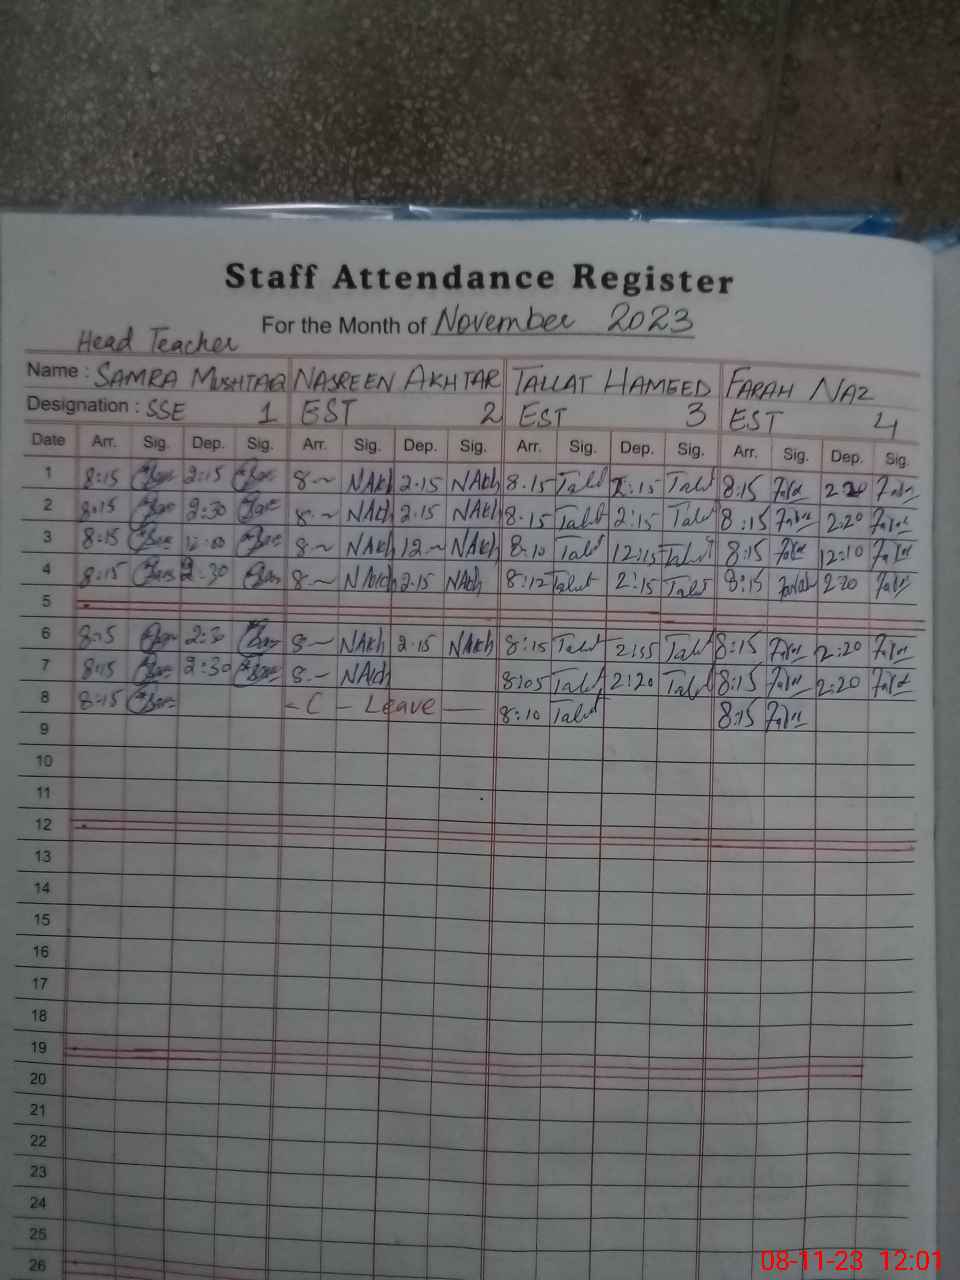 Staff Attendance Register
For the Month of November 2023
Head Teacher
Name : SAMRA MUSHTAQ NASREEN AKHTAR TALLAT HAMEED FARAH NAZ
Designation : SSE 1 EST 2 EST 3 EST 4
Date Arr. Sig. Dep. Sig. Arr. Sig. Dep. Sig. Arr. Sig. Dep. Sig. Arr. Sig. Dep. Sig.
1 8:15 2:15 8 ~ NAkh 2.15 NAkh 8.15 Talat 2:15 Talat 8:15 2 20
2 8:15 2:30 8 ~ NAkh 2.15 NAkh 8.15 Talat 2:15 Talat 8:15 2:20
3 8:15 8 ~ NAkh 12 ~ NAkh 8:10 Talat 12:15 Talat 8:15 12:10
4 8:15 2:30 8 ~ NAkh 2.15 NAkh 8:12 Talat 2:15 Talat 8:15 Farah 2:20
5
6 8:15 2:30 8 ~ NAkh 2.15 NAkh 8:15 Talat Talat 8:15 2:20
7 8:15 2:30 8 ~ NAkh 8:05 Talat 2:20 Talat 8:15 2:20
8 8:15 - C - Leave — 8:10 Talat 8:15
9
10
11
12
13
14
15
16
17
18
19
20
21
22
23
24
25
26
08-11-23 12:01